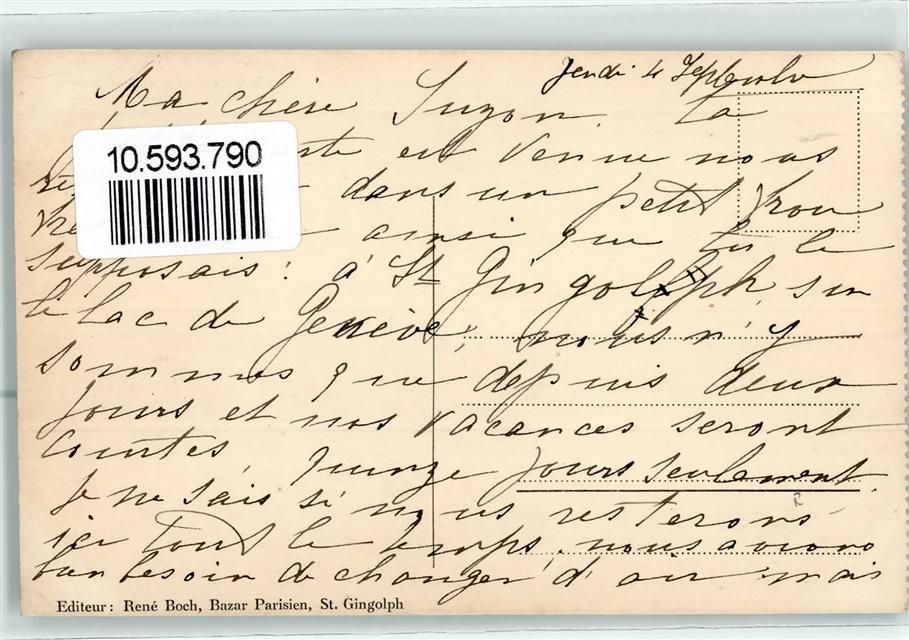 Jeudi 4 Septembre
Ma chère Suzon. La
carte est venue nous
dans un petit trou
ainsi que tu le
supposais! à St Gingolph, sur
le lac de Genève, nous n'y
sommes que depuis deux
jours et nos vacances seront
courtes, quinze jours seulement.
Je ne sais si nous resterons
ici tout le temps, nous avions
bien besoin de changer d'air mais
10.593.790
Editeur: René Boch, Bazar Parisien, St. Gingolph